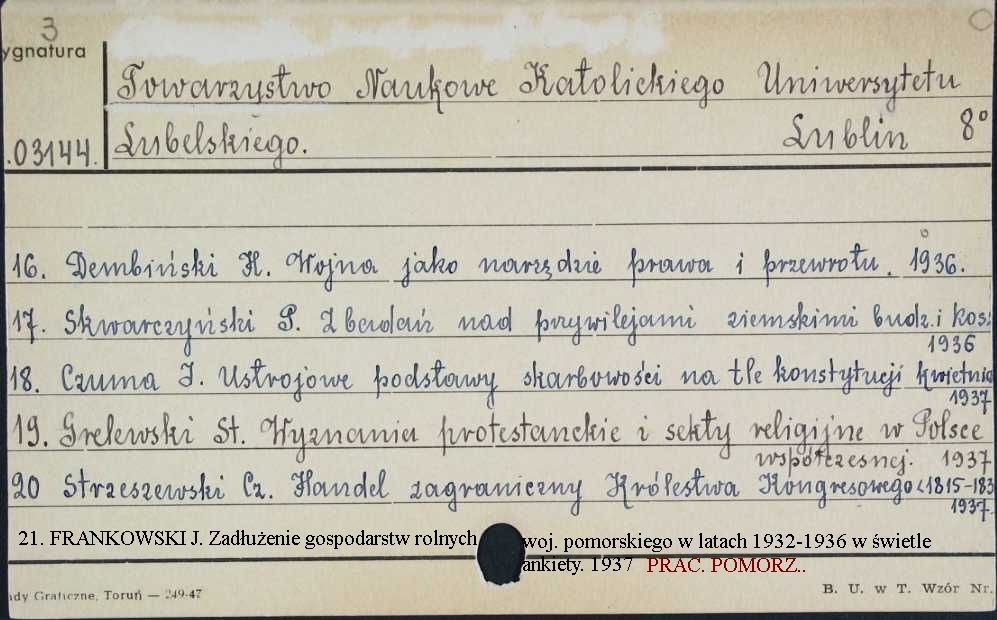 3
ygnatura
.03144.
Towarzystwo Naukowe Katolickiego Uniwersytetu
Lubelskiego. Lublin 8°
16. Dembiński H. Wojna jako narzędzie prawa i przewrotu. 1936.
17. Skwarczyński P. Z badań nad przywilejami ziemskimi budz. i kosz
1936
18. Czuma I. Ustrojowe podstawy skarbowości na tle konstytucji kwietnio
1937
19. Grelewski St. Wyznania protestanckie i sekty religijne w Polsce
współczesnej. 1937
20 Strzeszewski Cz. Handel zagraniczny Królestwa Kongresowego (1815-183
1937.
21. FRANKOWSKI J. Zadłużenie gospodarstw rolnych woj. pomorskiego w latach 1932-1936 w świetle
ankiety. 1937 PRAC. POMORZ..
ady Graficzne, Toruń — 249-47 B. U. w T. Wzór Nr.